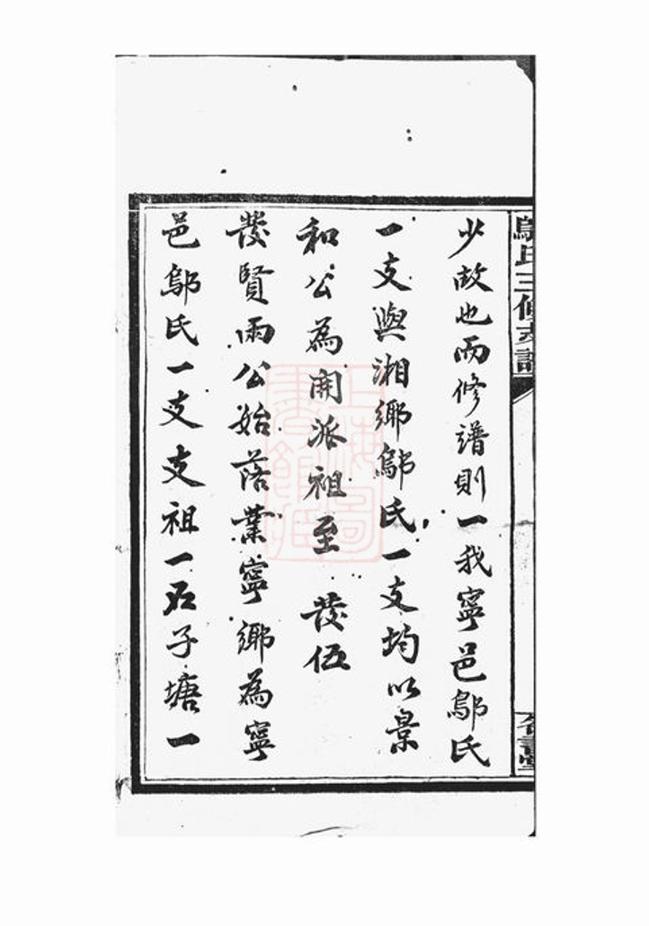 鄔氏三修支譜
少故也而修譜則一我寧邑鄔氏
一支與湘鄉鄔氏一支均以景
和公為開派祖至 發伍
發賢兩公始落業寧鄉為寧
邑鄔氏一支支祖一石子塘一
上海圖書館藏